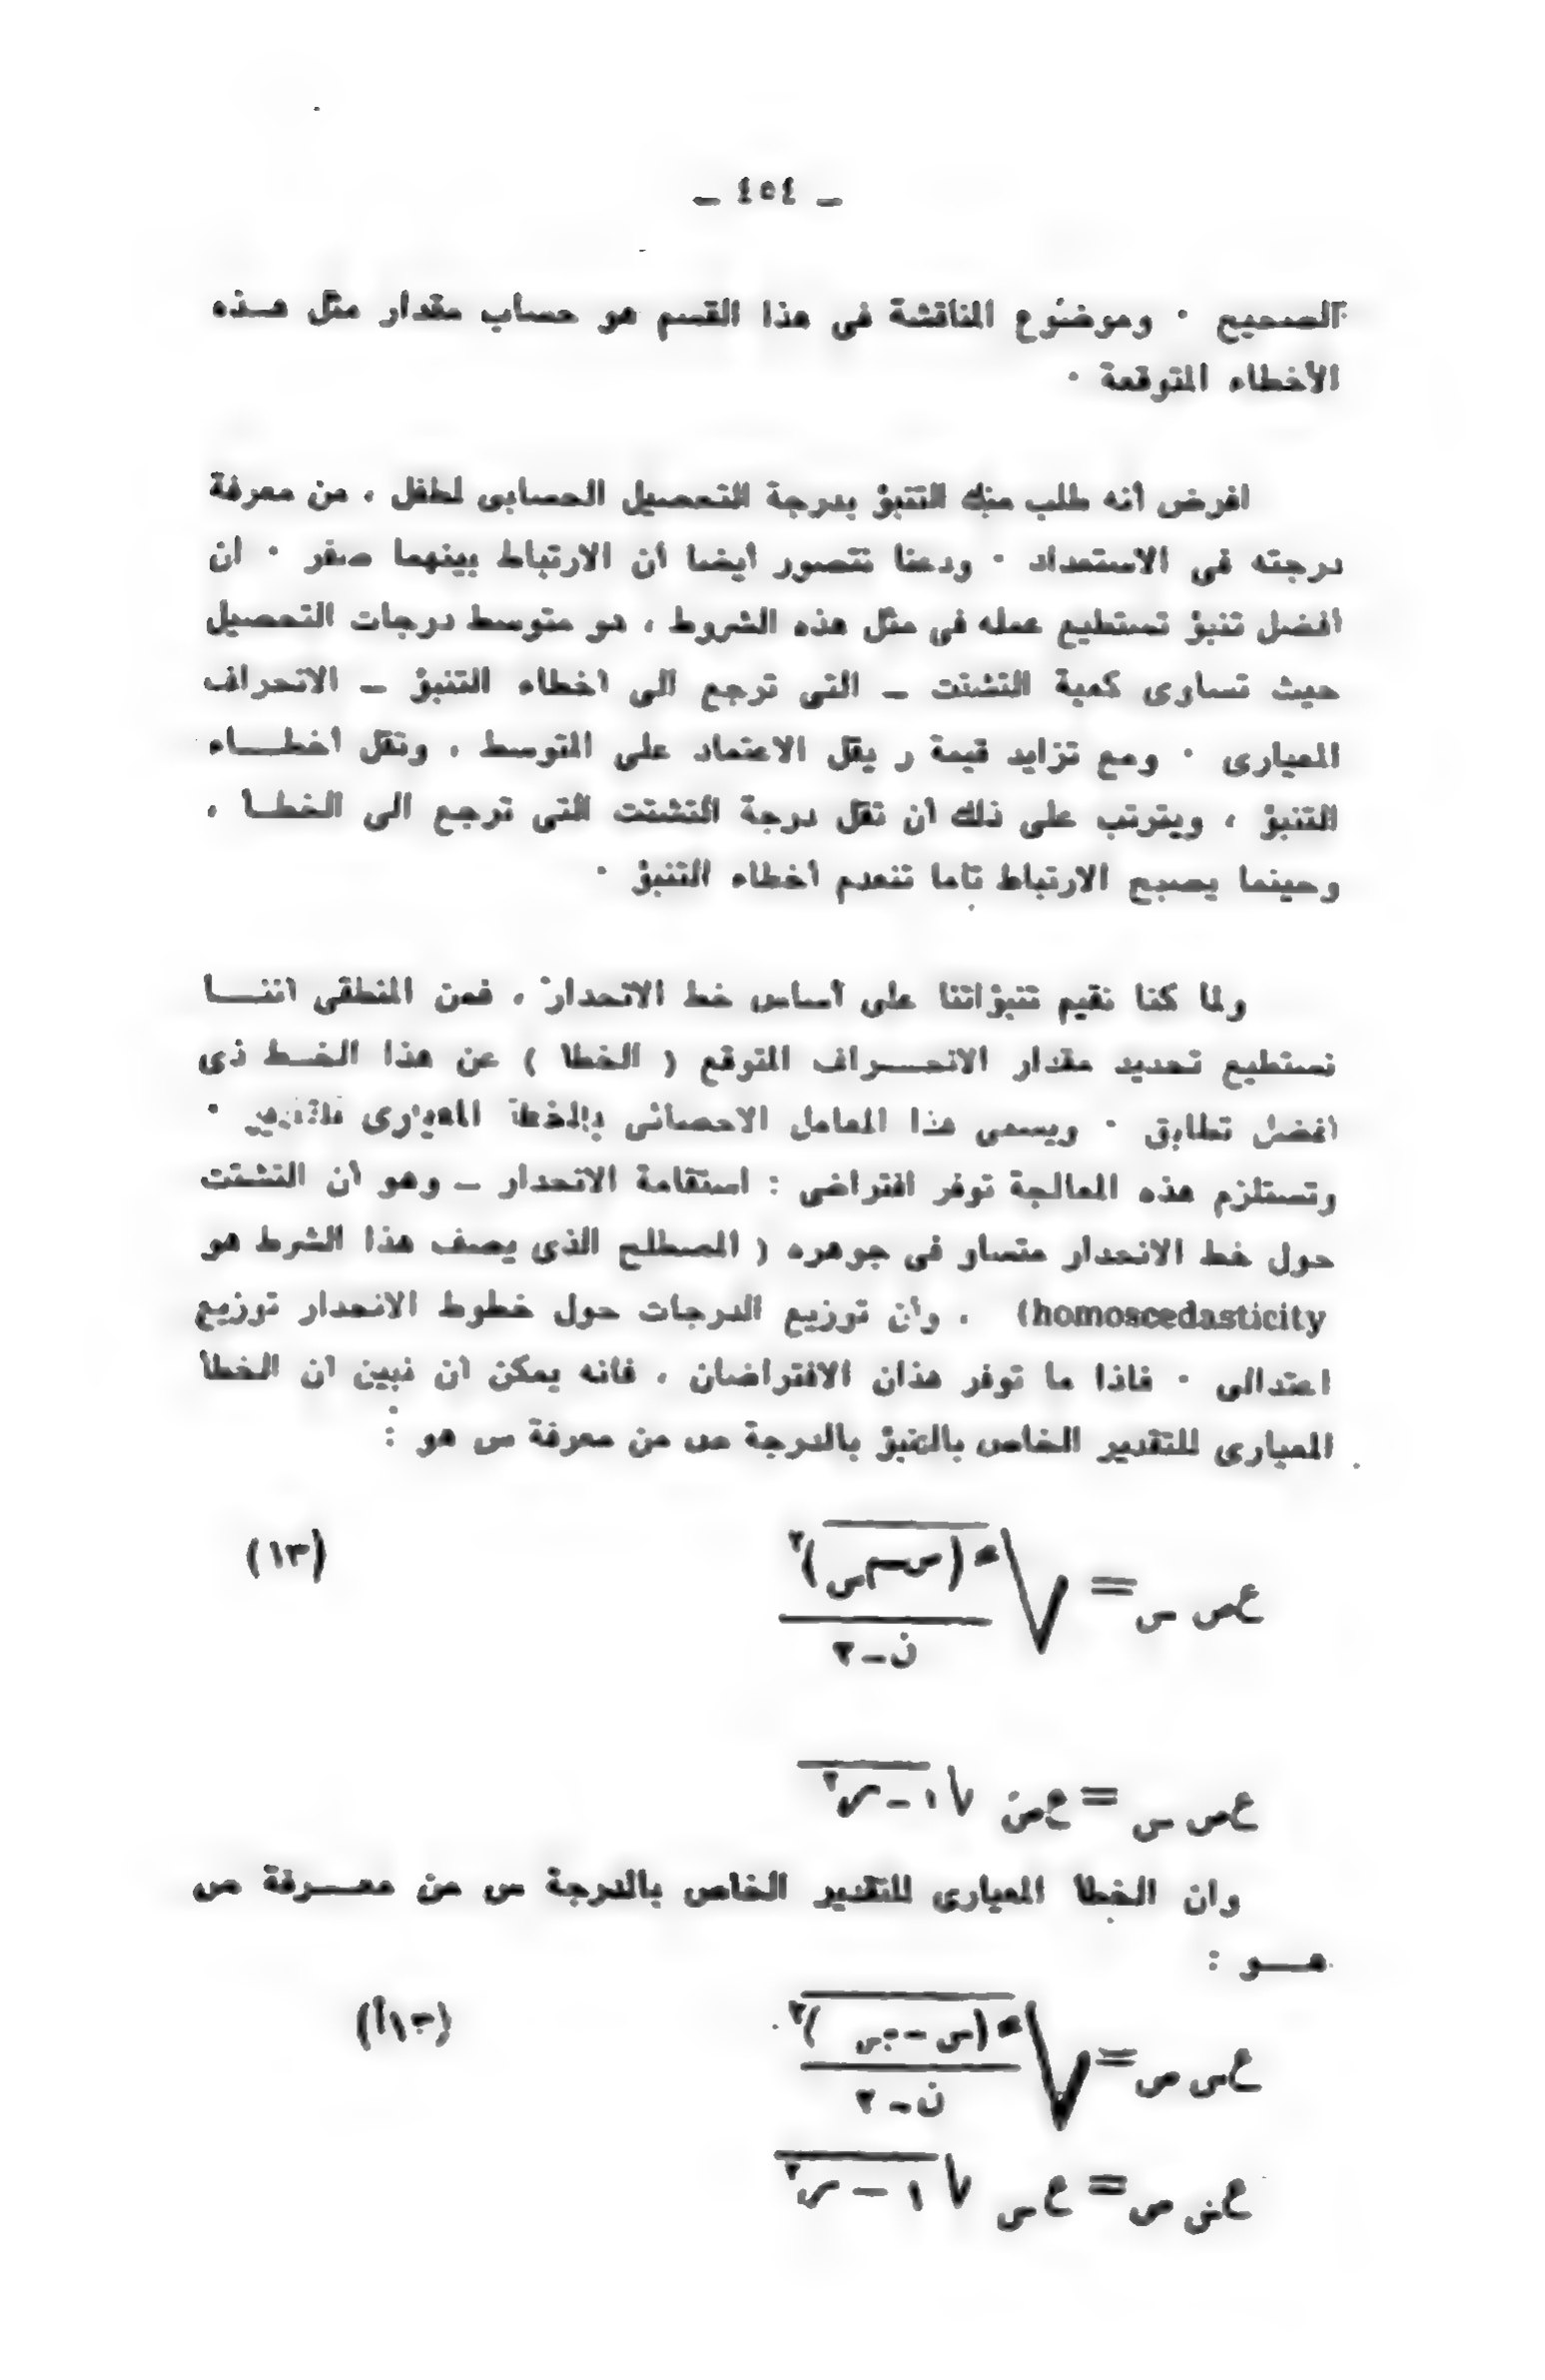 ـ ٤٥٤ ـ
الصحيح ٠ وموضوع المناقشة فى هذا القسم هو حساب مقدار مثل هـــذه
الأخطاء المتوقعة ٠
افرض أنه طلب منك التنبؤ بدرجة التحصيل الحسابى لطفل ، من معرفة
درجته فى الاستعداد ٠ ودعنا نتصور أيضا أن الارتباط بينهما صفر ٠ ان
أفضل تنبؤ تستطيع عمله فى مثل هذه الشروط ، هو متوسط درجات التحصيل
حيث تساوى كمية التشتت ـ التى ترجع الى أخطاء التنبؤ ـ الانحراف
المعيارى ٠ ومع تزايد قيمة ر يقل الاعتماد على المتوسط ، وتقل أخطـــاء
التنبؤ ، ويترتب على ذلك أن تقل درجة التشتت التى ترجع الى الخطــأ ،
وحينما يصبح الارتباط تاما تنعدم أخطاء التنبؤ ٠
ولما كنا نقيم تنبؤاتنا على أساس خط الانحدار ، فمن المنطقى أننـــا
نستطيع تحديد مقدار الانحـــراف المتوقع ( الخطأ ) عن هذا الخــط ذى
أفضل تطابق ٠ ويسمى هذا المعامل الاحصائى بالخطأ المعيارى للتقدير ٠
وتستلزم هذه المعالجة توفر افتراضى : استقامة الانحدار ـ وهو أن التشتت
حول خط الانحدار متساو فى جوهره ( المصطلح الذى يصف هذا الشرط هو
homoscedasticity) ، وأن توزيع الدرجات حول خطوط الانحدار توزيع
اعتدالى ٠ فاذا ما توفر هذان الافتراضان ، فانه يمكن أن نبين أن الخطأ
المعيارى للتقدير الخاص بالتنبؤ بالدرجة ص من معرفة س هو :
(١٣)
ع ص س =
ن ـ ٢
ع ص س = ع ص √ ١ ـ ر٢
وان الخطأ المعيارى للتقدير الخاص بالدرجة س من معـــرفة ص
هـــو :
(١٣أ)
ع س ص =
ن ـ ٢
ع س ص = ع س √ ١ ـ ر٢